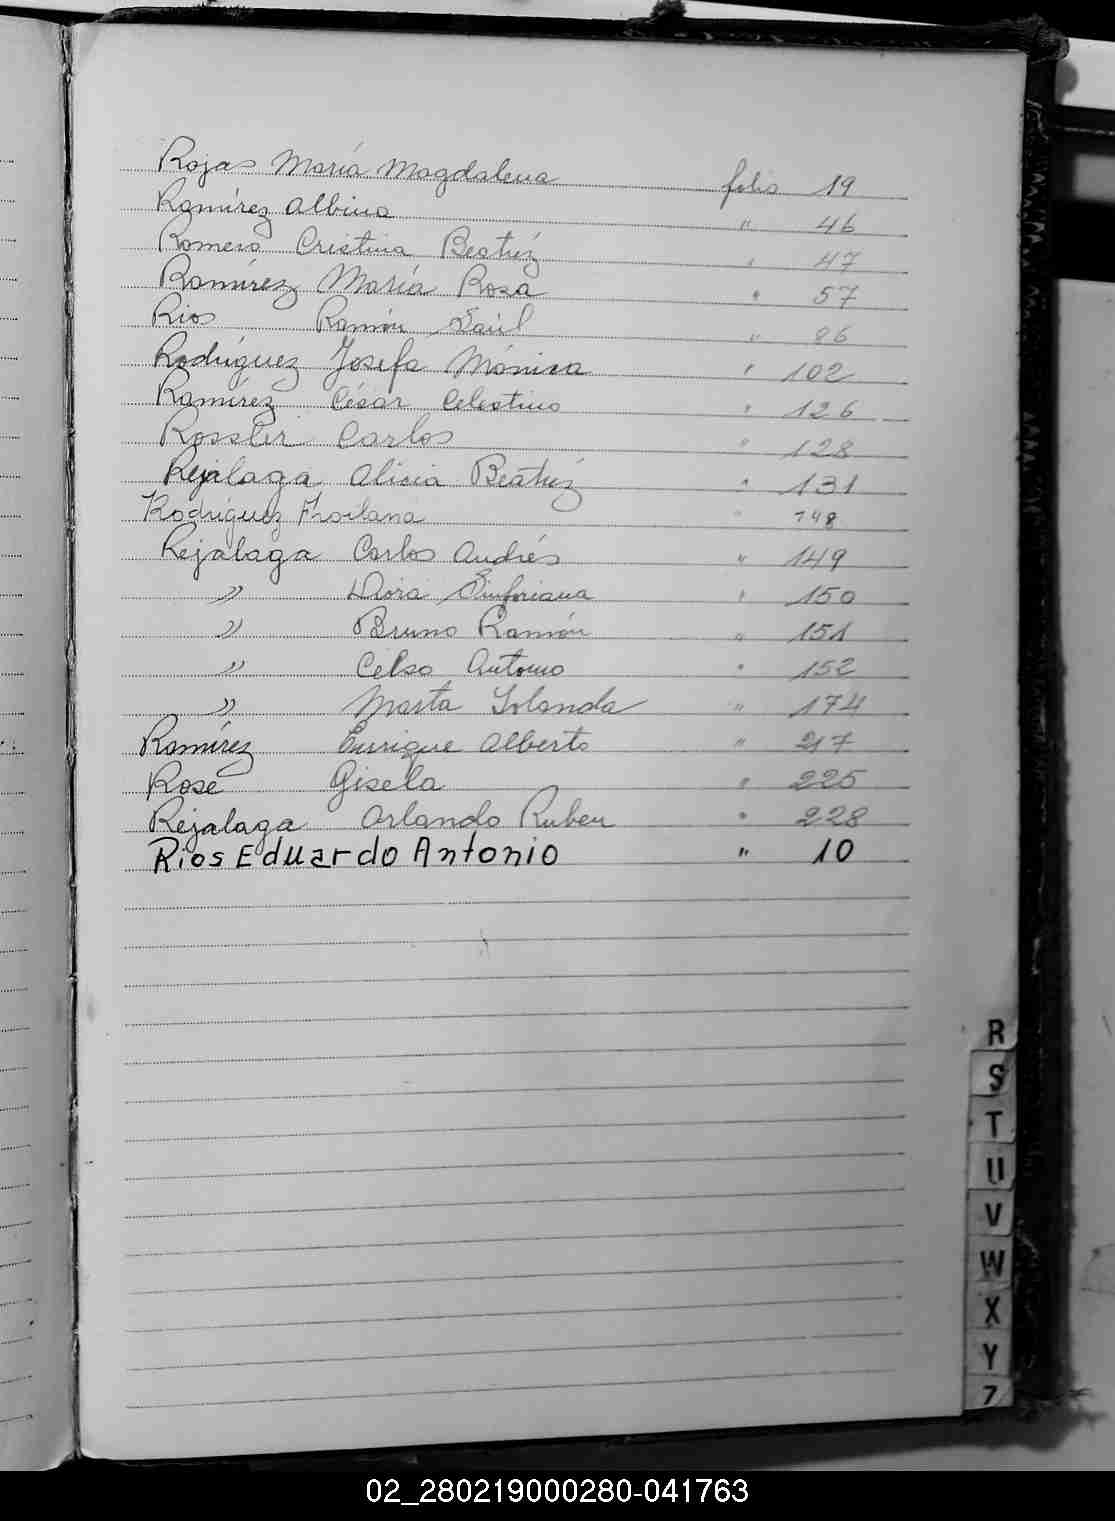 Rojas María Magdalena folio 19
Ramírez Albina " 46
Romero Cristina Beatríz " 47
Ramírez María Rosa " 57
Rios Ramón Saúl " 86
Rodríguez Josefa Mónica " 102
Ramírez César Celestino " 126
Rossler Carlos " 128
Rejalaga Alicia Beatríz " 131
Rodríguez Froilana " 148
Rejalaga Carlos Andrés " 149
" Dora Sinforiana " 150
" Bruno Ramón " 151
" Celso Antonio " 152
" Marta Iolanda " 174
Ramírez Enrique Alberto " 217
Rose Gisela " 225
Rejalaga Orlando Ruben " 228
Rios Eduardo Antonio " 10
R
S
T
U
V
W
X
Y
Z
02_280219000280-041763